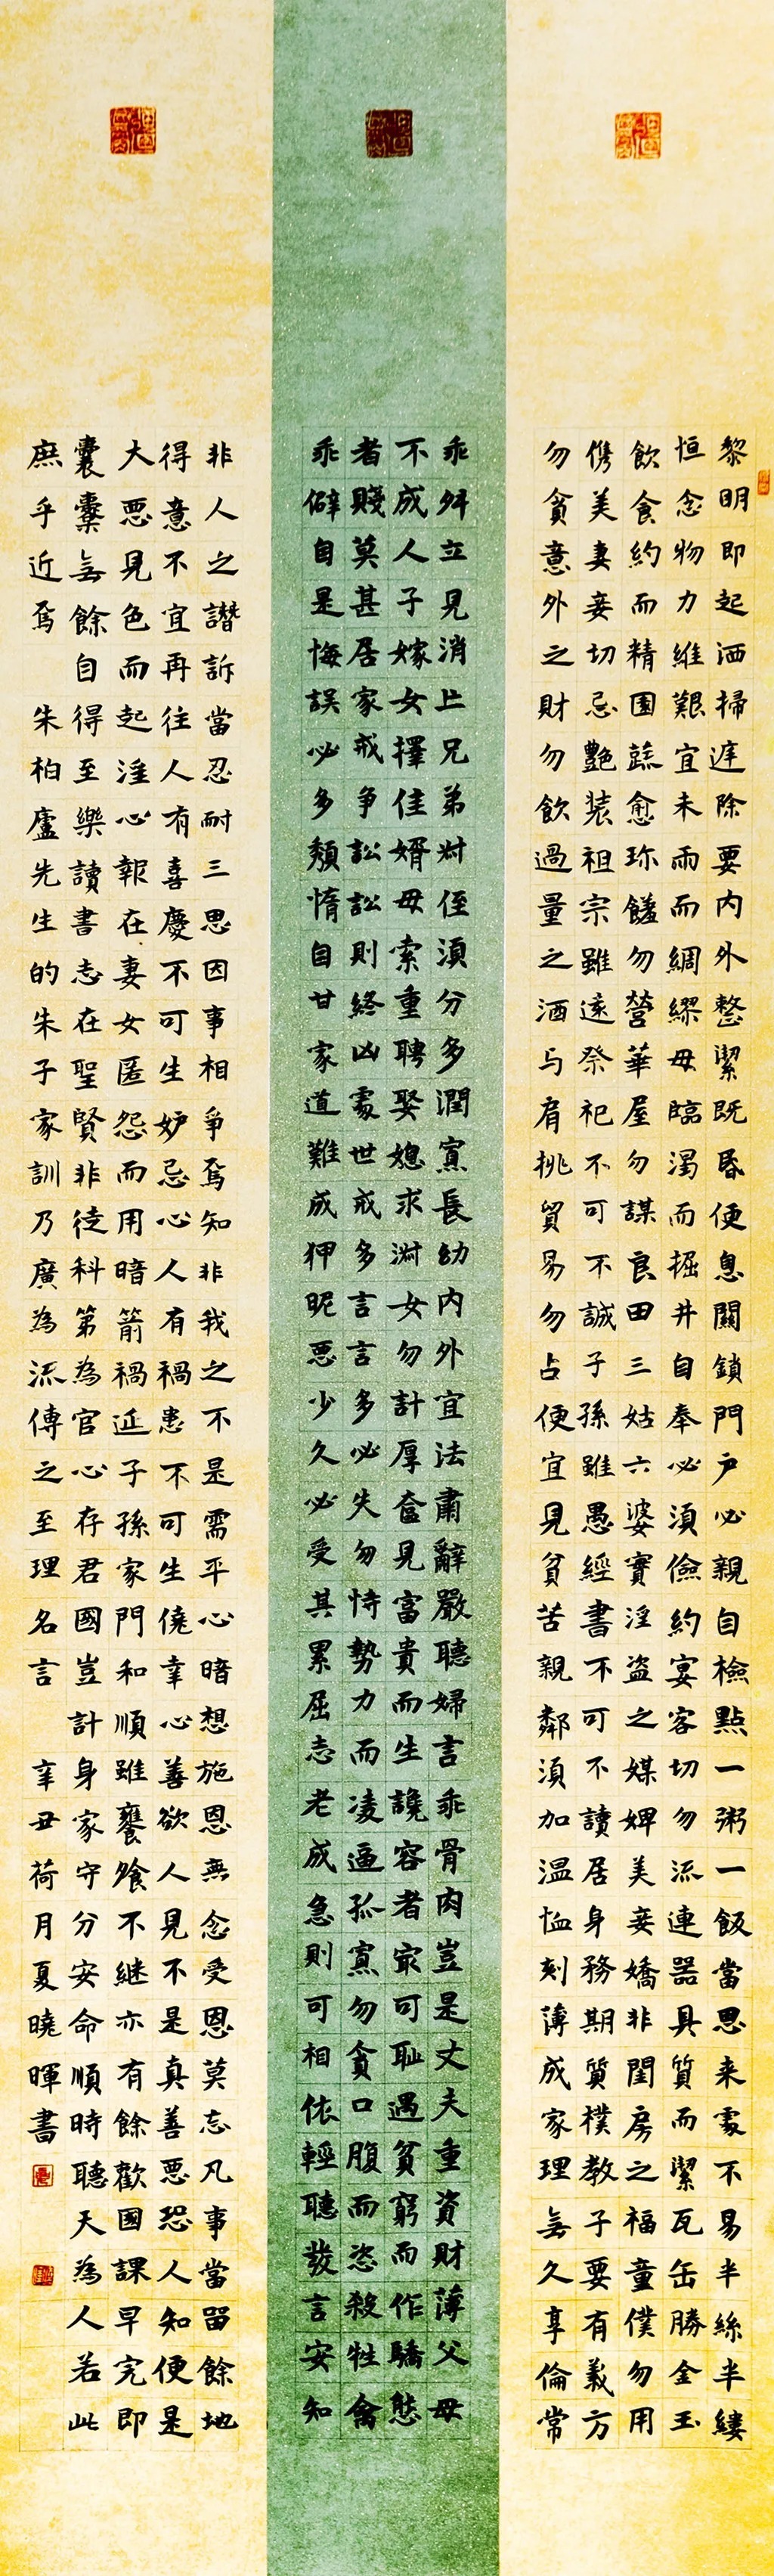 黎明即起洒掃庭除要内外整潔既昏便息關鎖門户必親自檢點一粥一飯當思来處不易半絲半縷
恒念物力維艱宜未雨而綢繆毋臨渴而掘井自奉必須儉約宴客切勿流連器具質而潔瓦缶勝金玉
飲食約而精園蔬愈珍饈勿營華屋勿謀良田三姑六婆實淫盗之媒婢美妾嬌非閨房之福童僕勿用
儁美妻妾切忌艷装祖宗雖遠祭祀不可不誠子孫雖愚經書不可不讀居身務期質樸教子要有義方
勿貪意外之財勿飲過量之酒与肩挑貿易勿占便宜見貧苦親鄰須加温恤刻薄成家理無久享倫常
乖舛立見消亡兄弟叔侄須分多潤寡長幼内外宜法肅辭嚴聽婦言乖骨肉豈是丈夫重資財薄父母
不成人子嫁女擇佳婿毋索重聘娶媳求淑女勿計厚奩見富貴而生讒容者最可恥遇貧窮而作驕態
者賤莫甚居家戒争訟訟則終凶處世戒多言言多必失勿恃勢力而凌逼孤寡勿貪口腹而恣殺牲禽
乖僻自是悔誤必多頽惰自甘家道難成狎昵恶少久必受其累屈志老成急則可相依輕聽發言安知
非人之譖訴當忍耐三思因事相爭焉知非我之不是需平心暗想施恩無念受恩莫忘凡事當留餘地
得意不宜再往人有喜慶不可生妒忌心人有禍患不可生僥幸心善欲人見不是真善恶恐人知便是
大恶見色而起淫心報在妻女匿怨而用暗箭禍延子孫家門和順雖饔飧不継亦有餘歡國課早完即
囊橐無餘自得至樂讀書志在聖賢非徒科第為官心存君國豈計身家守分安命順時聽天為人若此
庶乎近焉 朱柏廬先生的朱子家訓乃廣為流傳之至理名言 辛丑荷月夏曉暉書